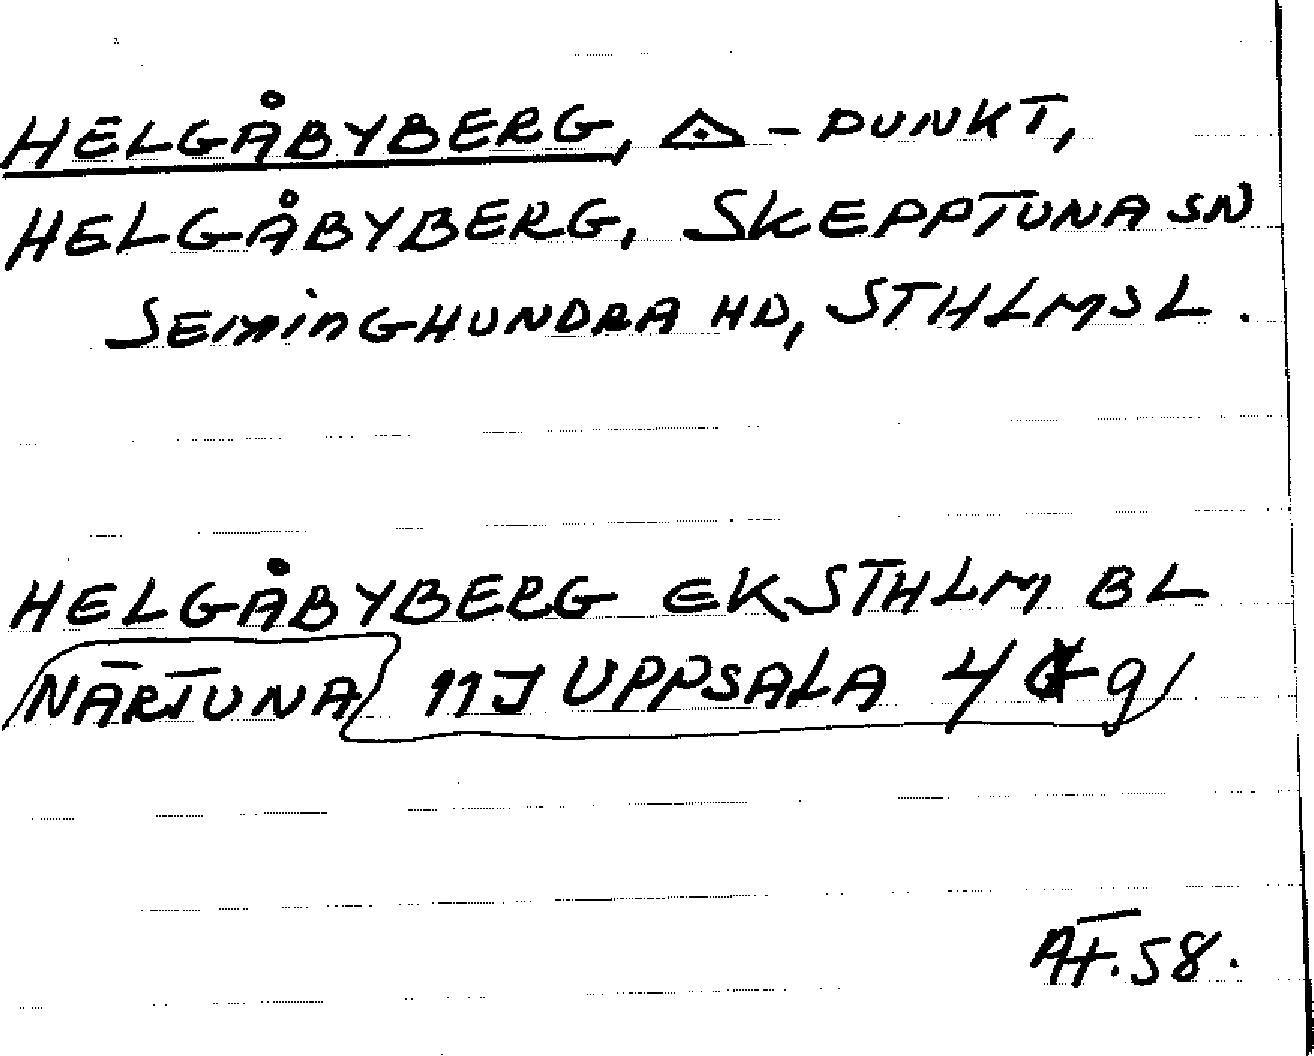 HELGÅBYBERG, △ - PUNKT,
HELGÅBYBERG, SKEPPTUNA SN
SEMINGHUNDRA HD, STHLMS L.
HELGÅBYBERG EK STHLM BL
NÄRTUNA 11J UPPSALA 4 g
AT.58.